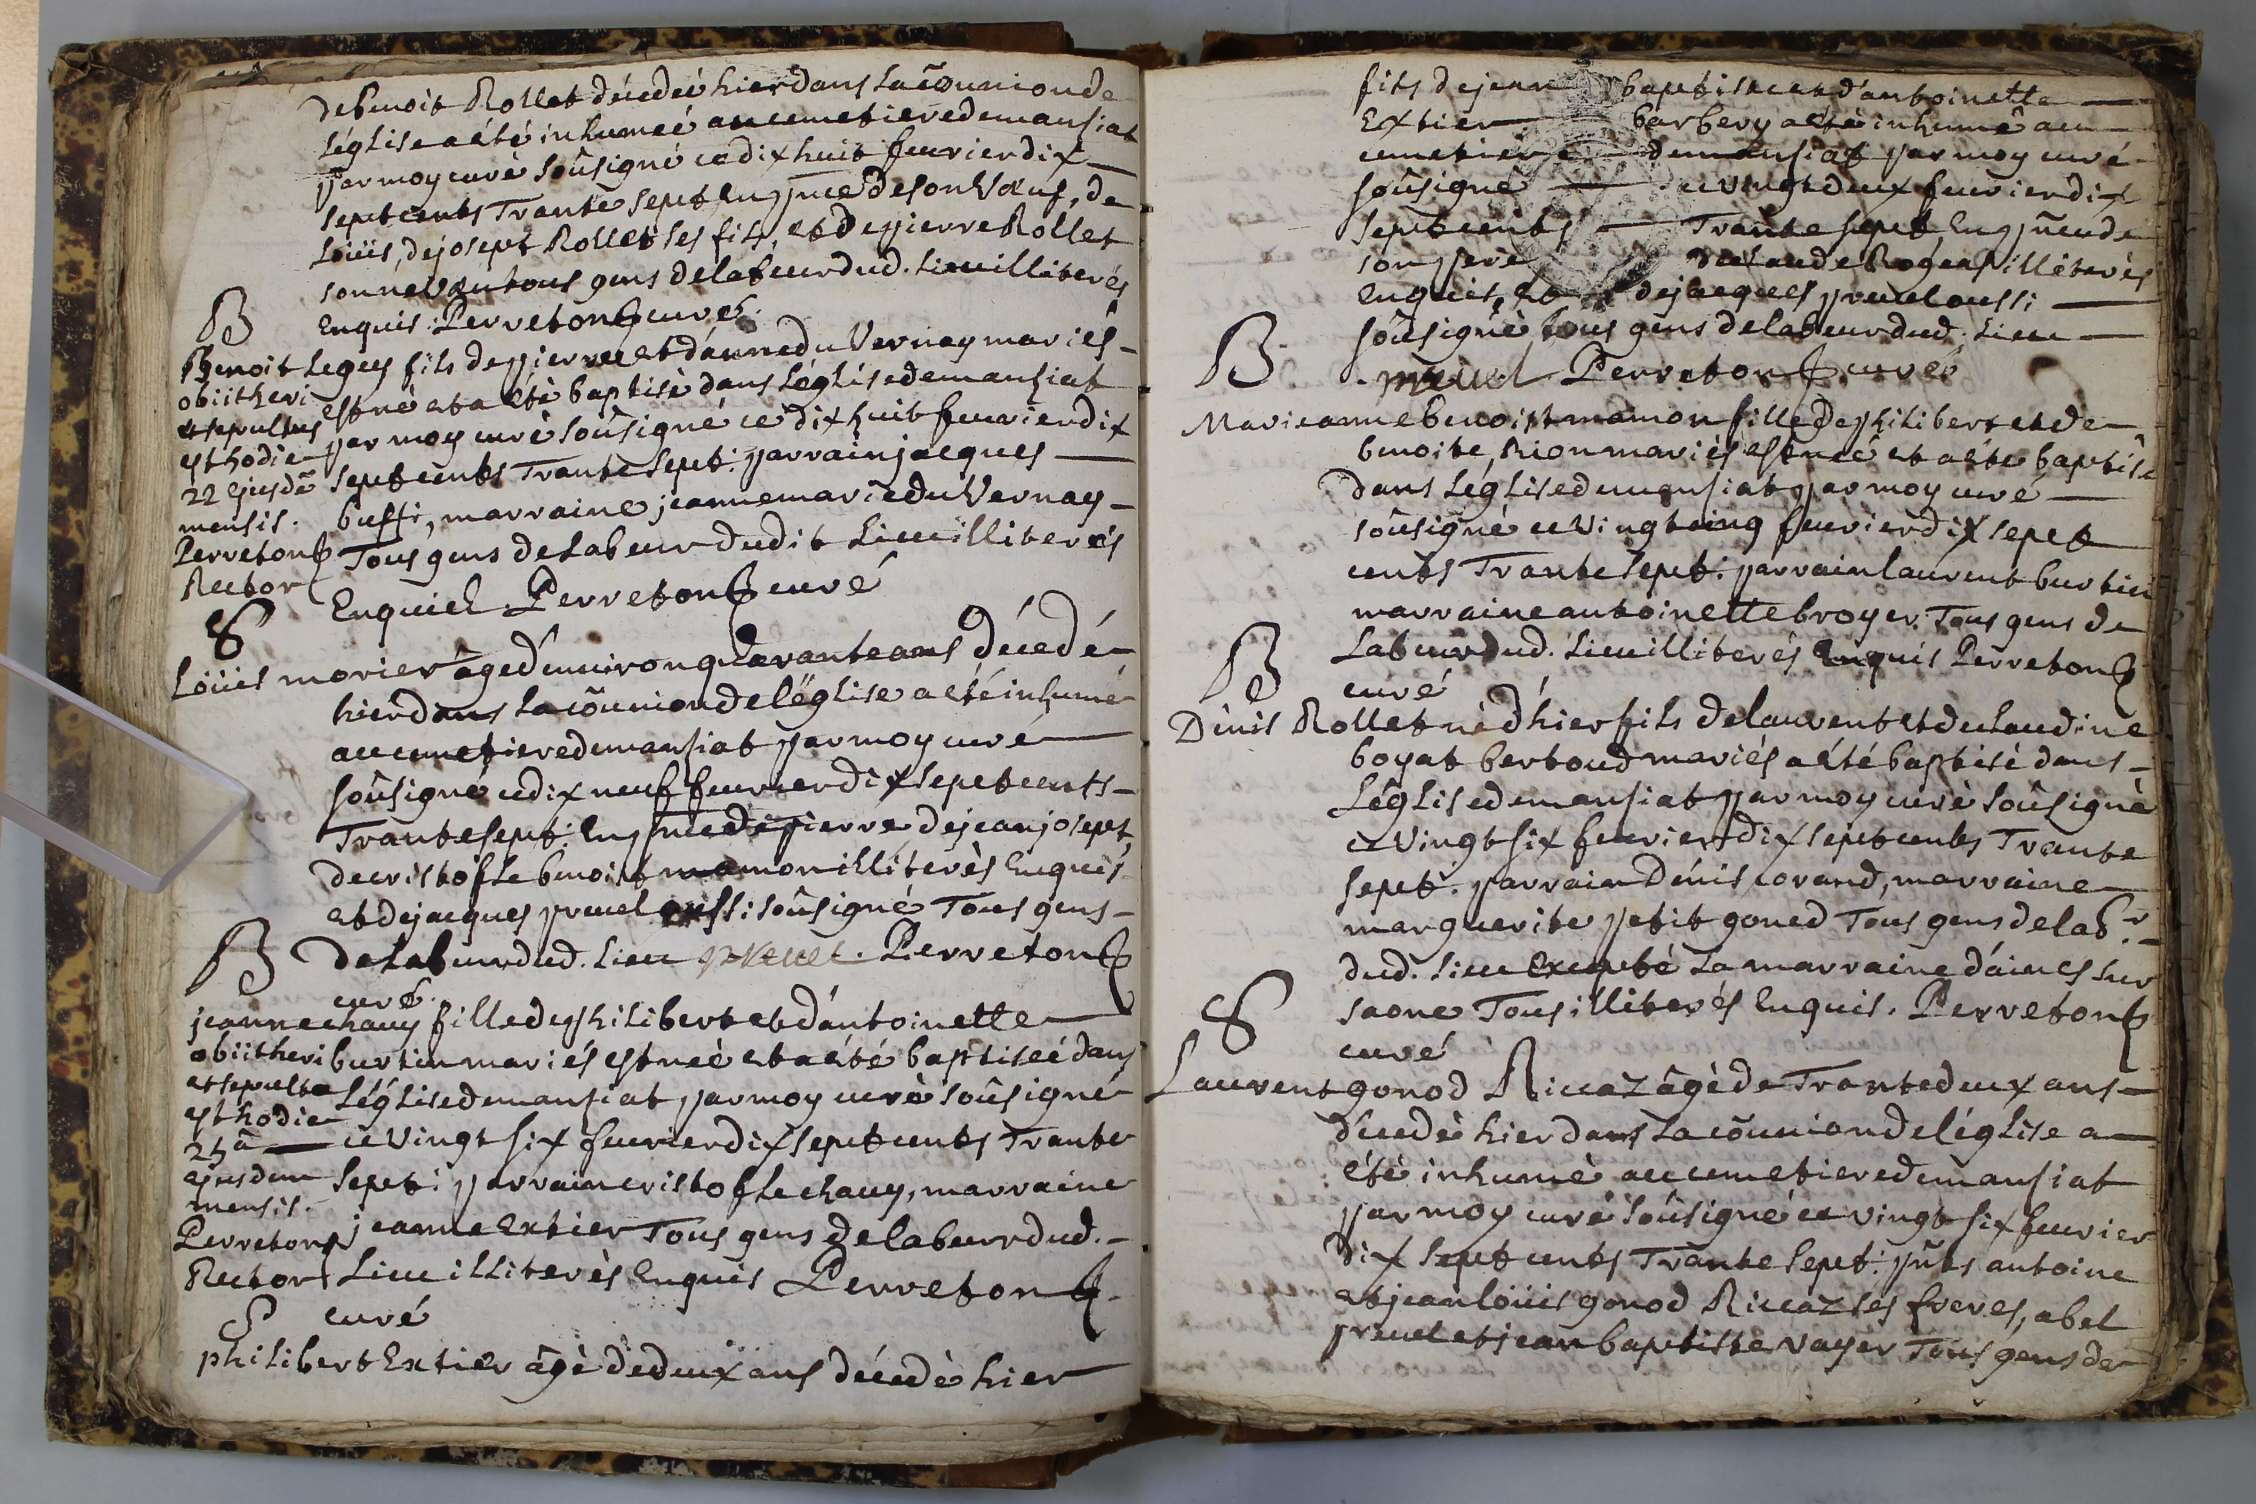 de benoit Rollet décedeé hier dans la cõunion de
l'église a été inhumeé au cemetiere de mansiat
par moy curé soûsigné ce dix huit feuvrier dix
sept cents Trante sept En pñce de son Vœuf, de
Loüis, de josept Rollet ses fils, et de pierre Rollet
son néveu tous gens de labeur dud. Lieu illiterés
Enquis. Perreton curé.
B
Benoit Leguy fils de pierre et d'anne du Vernay mariés
est né et a été baptisè dans l'église de mansiat
par moy curè soûsigné ce dix huit feuvrier dix
sept cents Trante sept. parrain jacques
buffi, marraine jeanne marie du Vernay
Tous gens de Labeur dudit Lieu illiterés
Enquis Perreton curé
obiit heri
et sepultus
est hodie
22 ejusdẽ
mensis.
Perreton
Rector
S
Loüis morier âgé d'environ quarante ans décedé
hier dans la cõunion de l'église a été inhumé
au cemetiere de mansiat par moy curé
soûsigné ce dix neuf feuvrier dix sept cents
Trante sept. En pñce de pierre de jean josept,
de cristofle benoist mamon illiterès Enquis
et de jacques preuel aussi soûsigné Tous gens
de Labeur dud. Lieu preuel. Perreton
curé.
B
jeanne chavy fille de philibert et d'antoinette
burtin mariés est neé et a été baptiseé dans
l'église de mansiat par moy curè soûsigné
ce Vingt six feuvrier dix sept cents Trante
sept. parrain cristofle chavy, marraine
jeanne Extier Tous gens de labeur dud.
Lieu illiterès Enquis Perreton
curé
obiit heri
et sepulta
est hodie
25ã
ejusdem
mensis.
Perreton
Rector
S
philibert Extier âgè de deux ans décedè hier
fils de jean baptiste et d'antoinette
Extier barbery a été inhumé au
cemetiere de mansiat par moy curé
soûsigné ce vingt deux feuvrier dix
sept cents Trante sept En pñce de
son pere illiterès
Enquis, et de jacques preuel aussi
soûsigné tous gens de labeur dud. Lieu
preuel Perreton curé
B
Marie anne benoist mamon fille de philibert et de
benoite Rion mariés est neé et a été baptisé
dans l'église de mansiat par moy curé
soûsigné ce Vingt cinq feuvrier dix sept
cents Trante sept. parrain laurent burtin
marraine antoinette broyer Tous gens de
Labeur dud. Lieu illiterés Enquis Perreton
curé
B
Dènis Rollet né d'hier fils de laurent et de claudine
boyat bertoud mariés a été baptisé dans
l'église de mansiat par moy curè soûsigné
ce Vingt six feuvrier dix sept cents Trante
sept. parrain Dénis corand, marraine
marguerite petit goned Tous gens de labr.
dud. Lieu Excepté La marraine d'aines sur
saone Tous illiterés Enquis. Perreton
curé
S
Laurent gonod Riccaz âgè de Trante deux ans
décedè hier dans La cõunion de l'église a
été inhumè au cemetiere de mansiat
par moy curè soûsigné ce vingt six feuvrier
dix sept cents Trante sept. pñts antoine
et jean loüis gonod Riccaz ses freres, abel
preuel et jean baptiste vayer Tous gens de